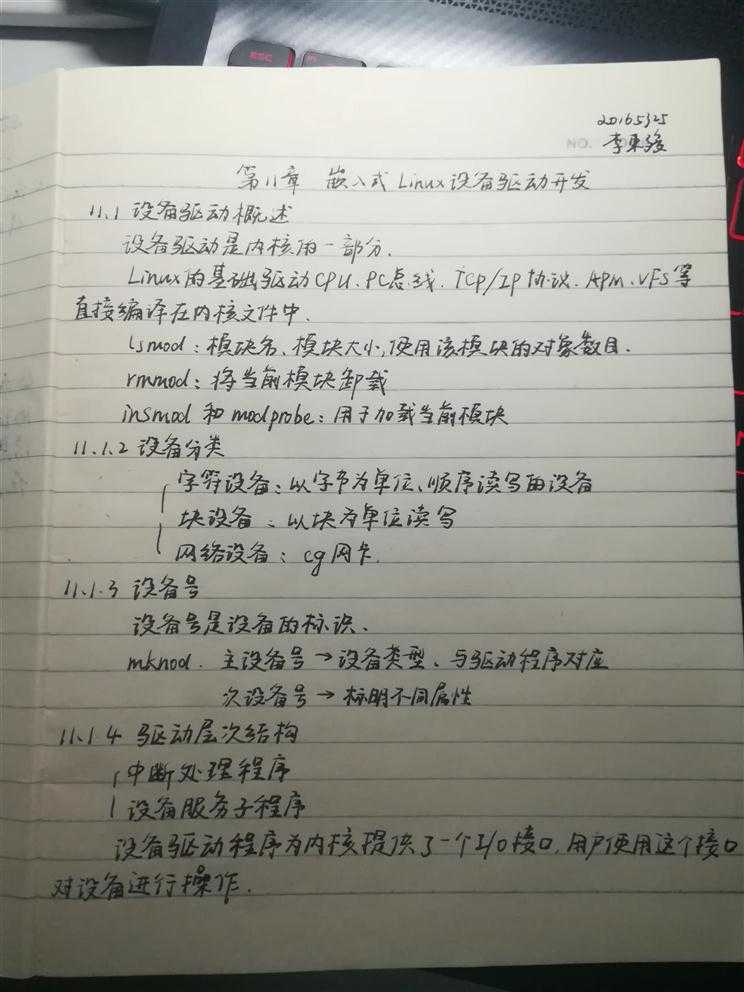 ESC
20165325
NO.
李東骏
第11章 嵌入式Linux设备驱动开发
11.1 设备驱动概述
设备驱动是内核的一部分.
Linux的基础驱动CPU、PC总线、TCP/IP协议、APM、VFS等
直接编译在内核文件中.
lsmod：模块名、模块大小,使用该模块的对象数目.
rmmod：将当前模块卸载
insmod 和 modprobe：用于加载当前模块
11.1.2 设备分类
字符设备：以字节为单位、顺序读写的设备
块设备：以块为单位读写
网络设备：cg网卡.
11.1.3 设备号
设备号是设备的标识、
mknod. 主设备号→设备类型、与驱动程序对应
次设备号→标明不同属性
11.1.4 驱动层次结构
中断处理程序
设备服务子程序
设备驱动程序为内核提供了一个I/O接口,用户使用这个接口
对设备进行操作.